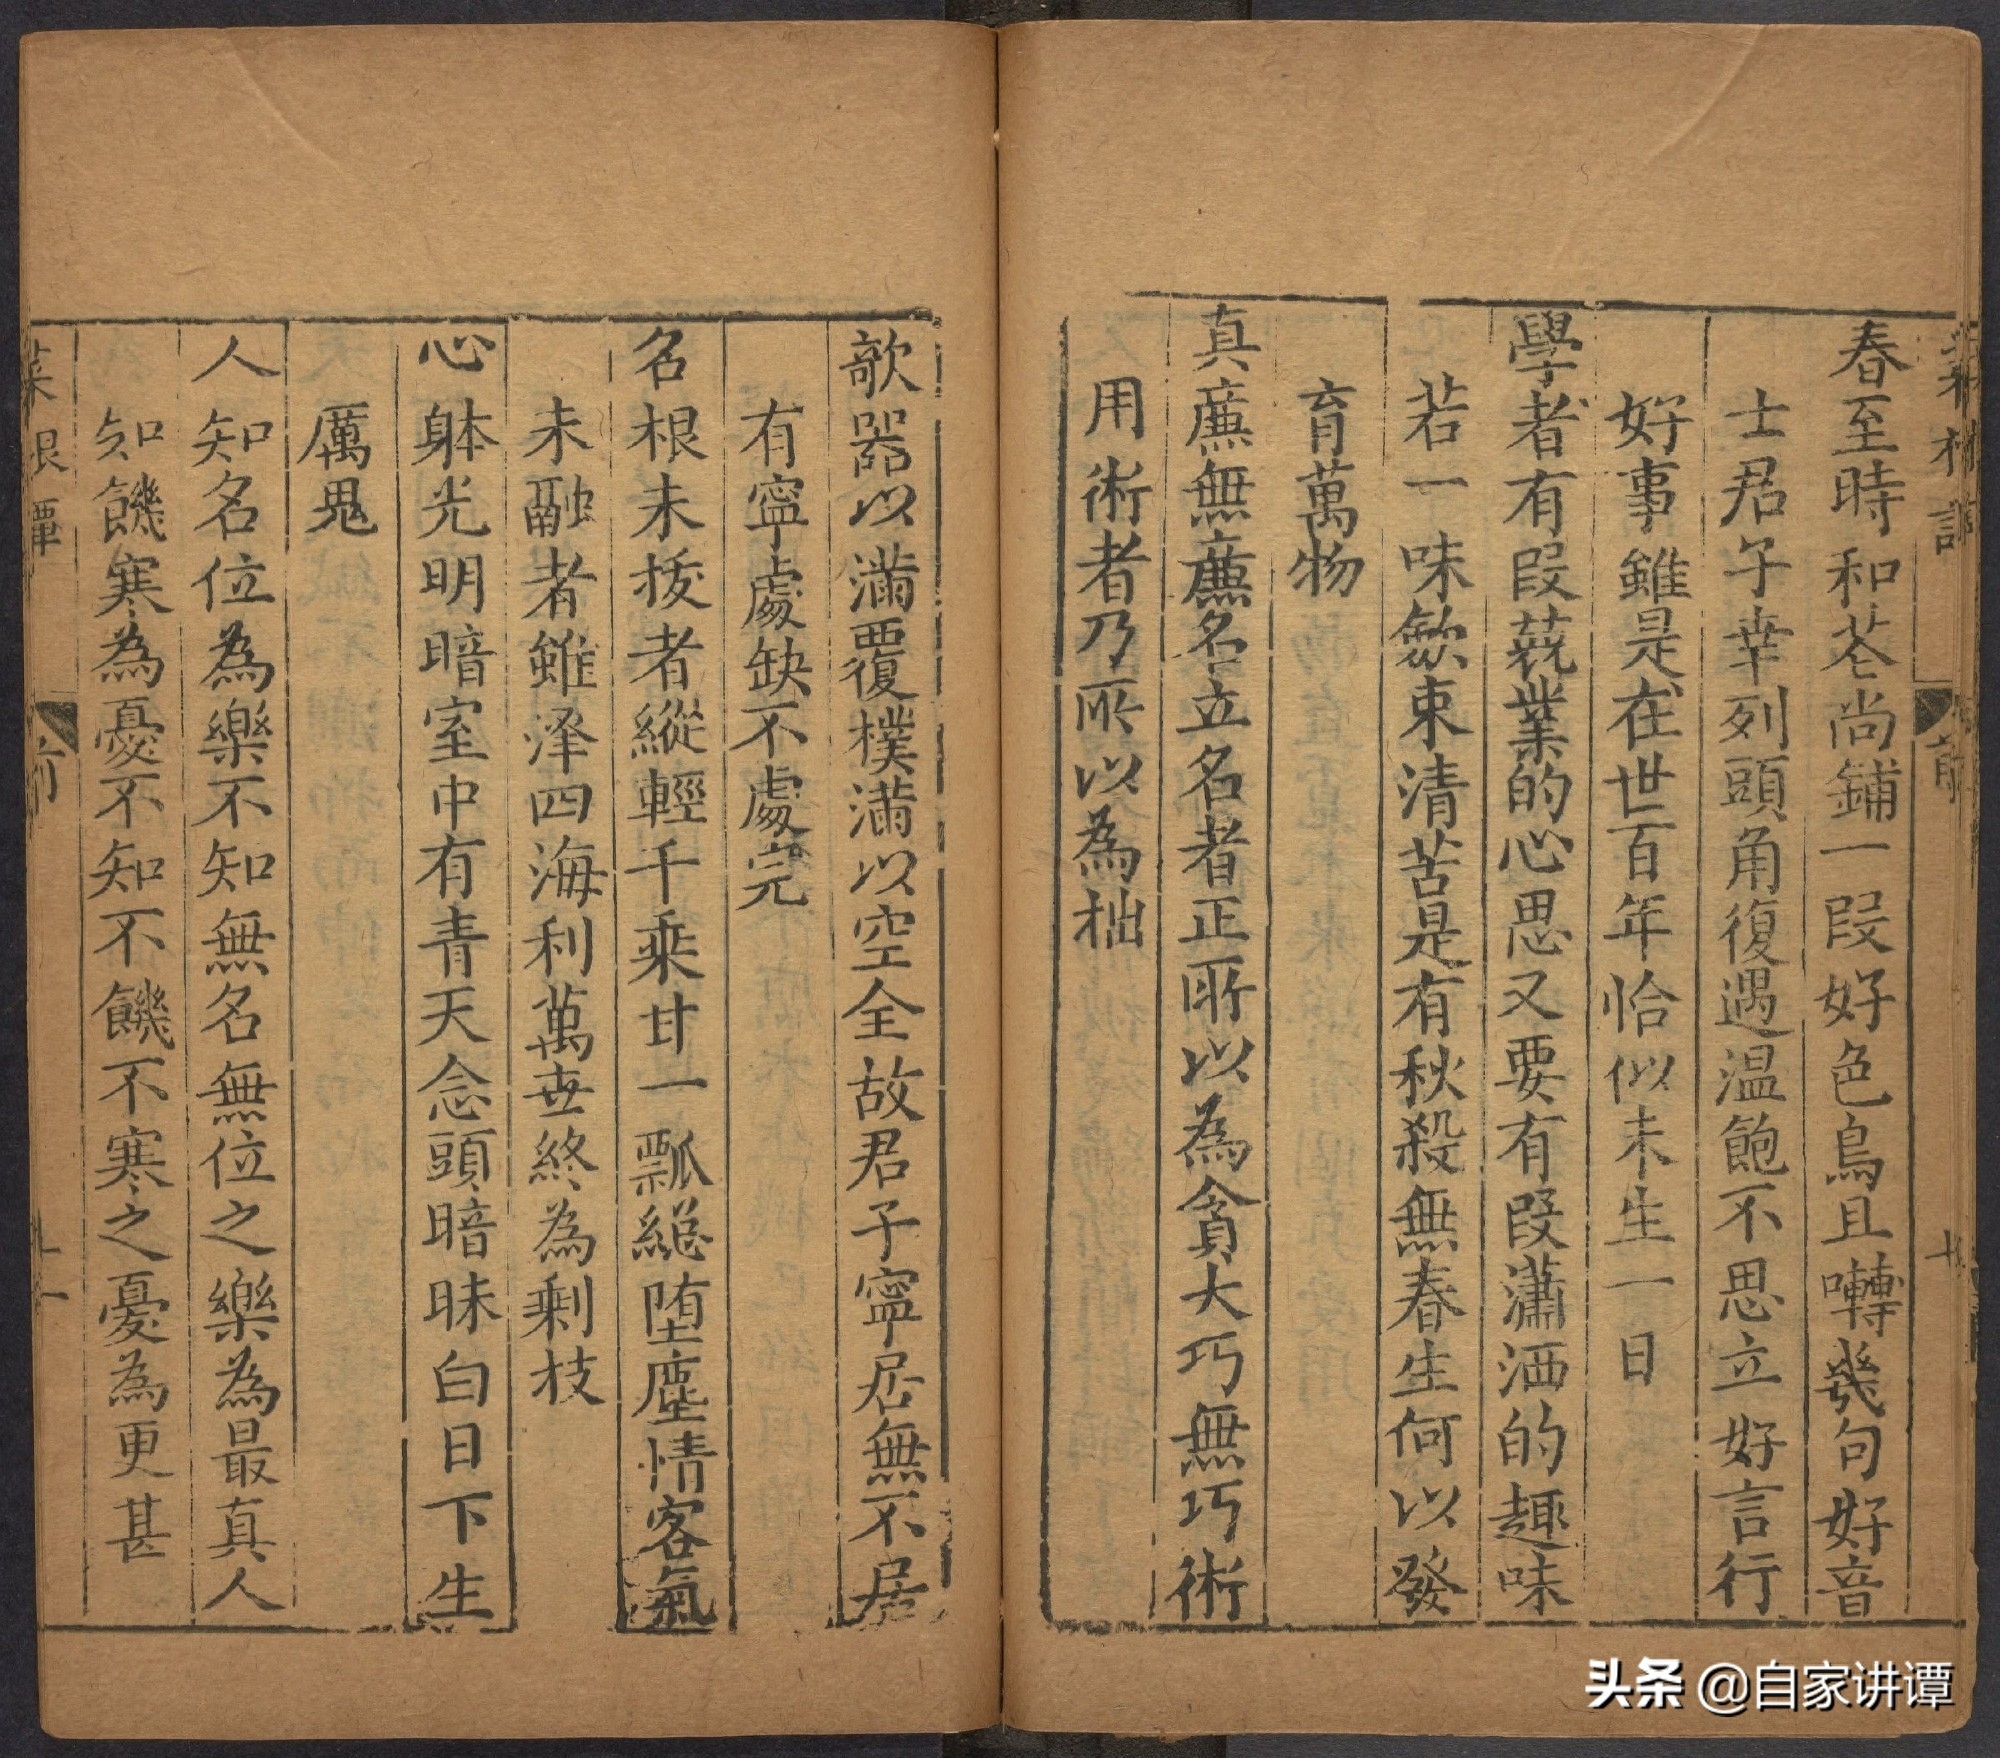 春至時和花尚鋪一段好色鳥且囀幾句好音
士君子幸列頭角復遇温飽不思立好言行
好事雖是在世百年恰似未生一日
學者有段兢業的心思又要有段瀟洒的趣味
若一味歛束清苦是有秋殺無春生何以發
育萬物
真廉無廉名立名者正所以為貪大巧無巧術
用術者乃所以為拙
欹器以滿覆樸滿以空全故君子寧居無不居
有寧處缺不處完
名根未拔者縱輕千乘甘一瓢緫墮塵情客氣
未融者雖澤四海利萬世終為剩技
心躰光明暗室中有青天念頭暗昧白日下生
厲鬼
人知名位為樂不知無名無位之樂為最真人
知饑寒為憂不知不饑不寒之憂為更甚
菜根譚
前
十一
头条 @自家讲谭